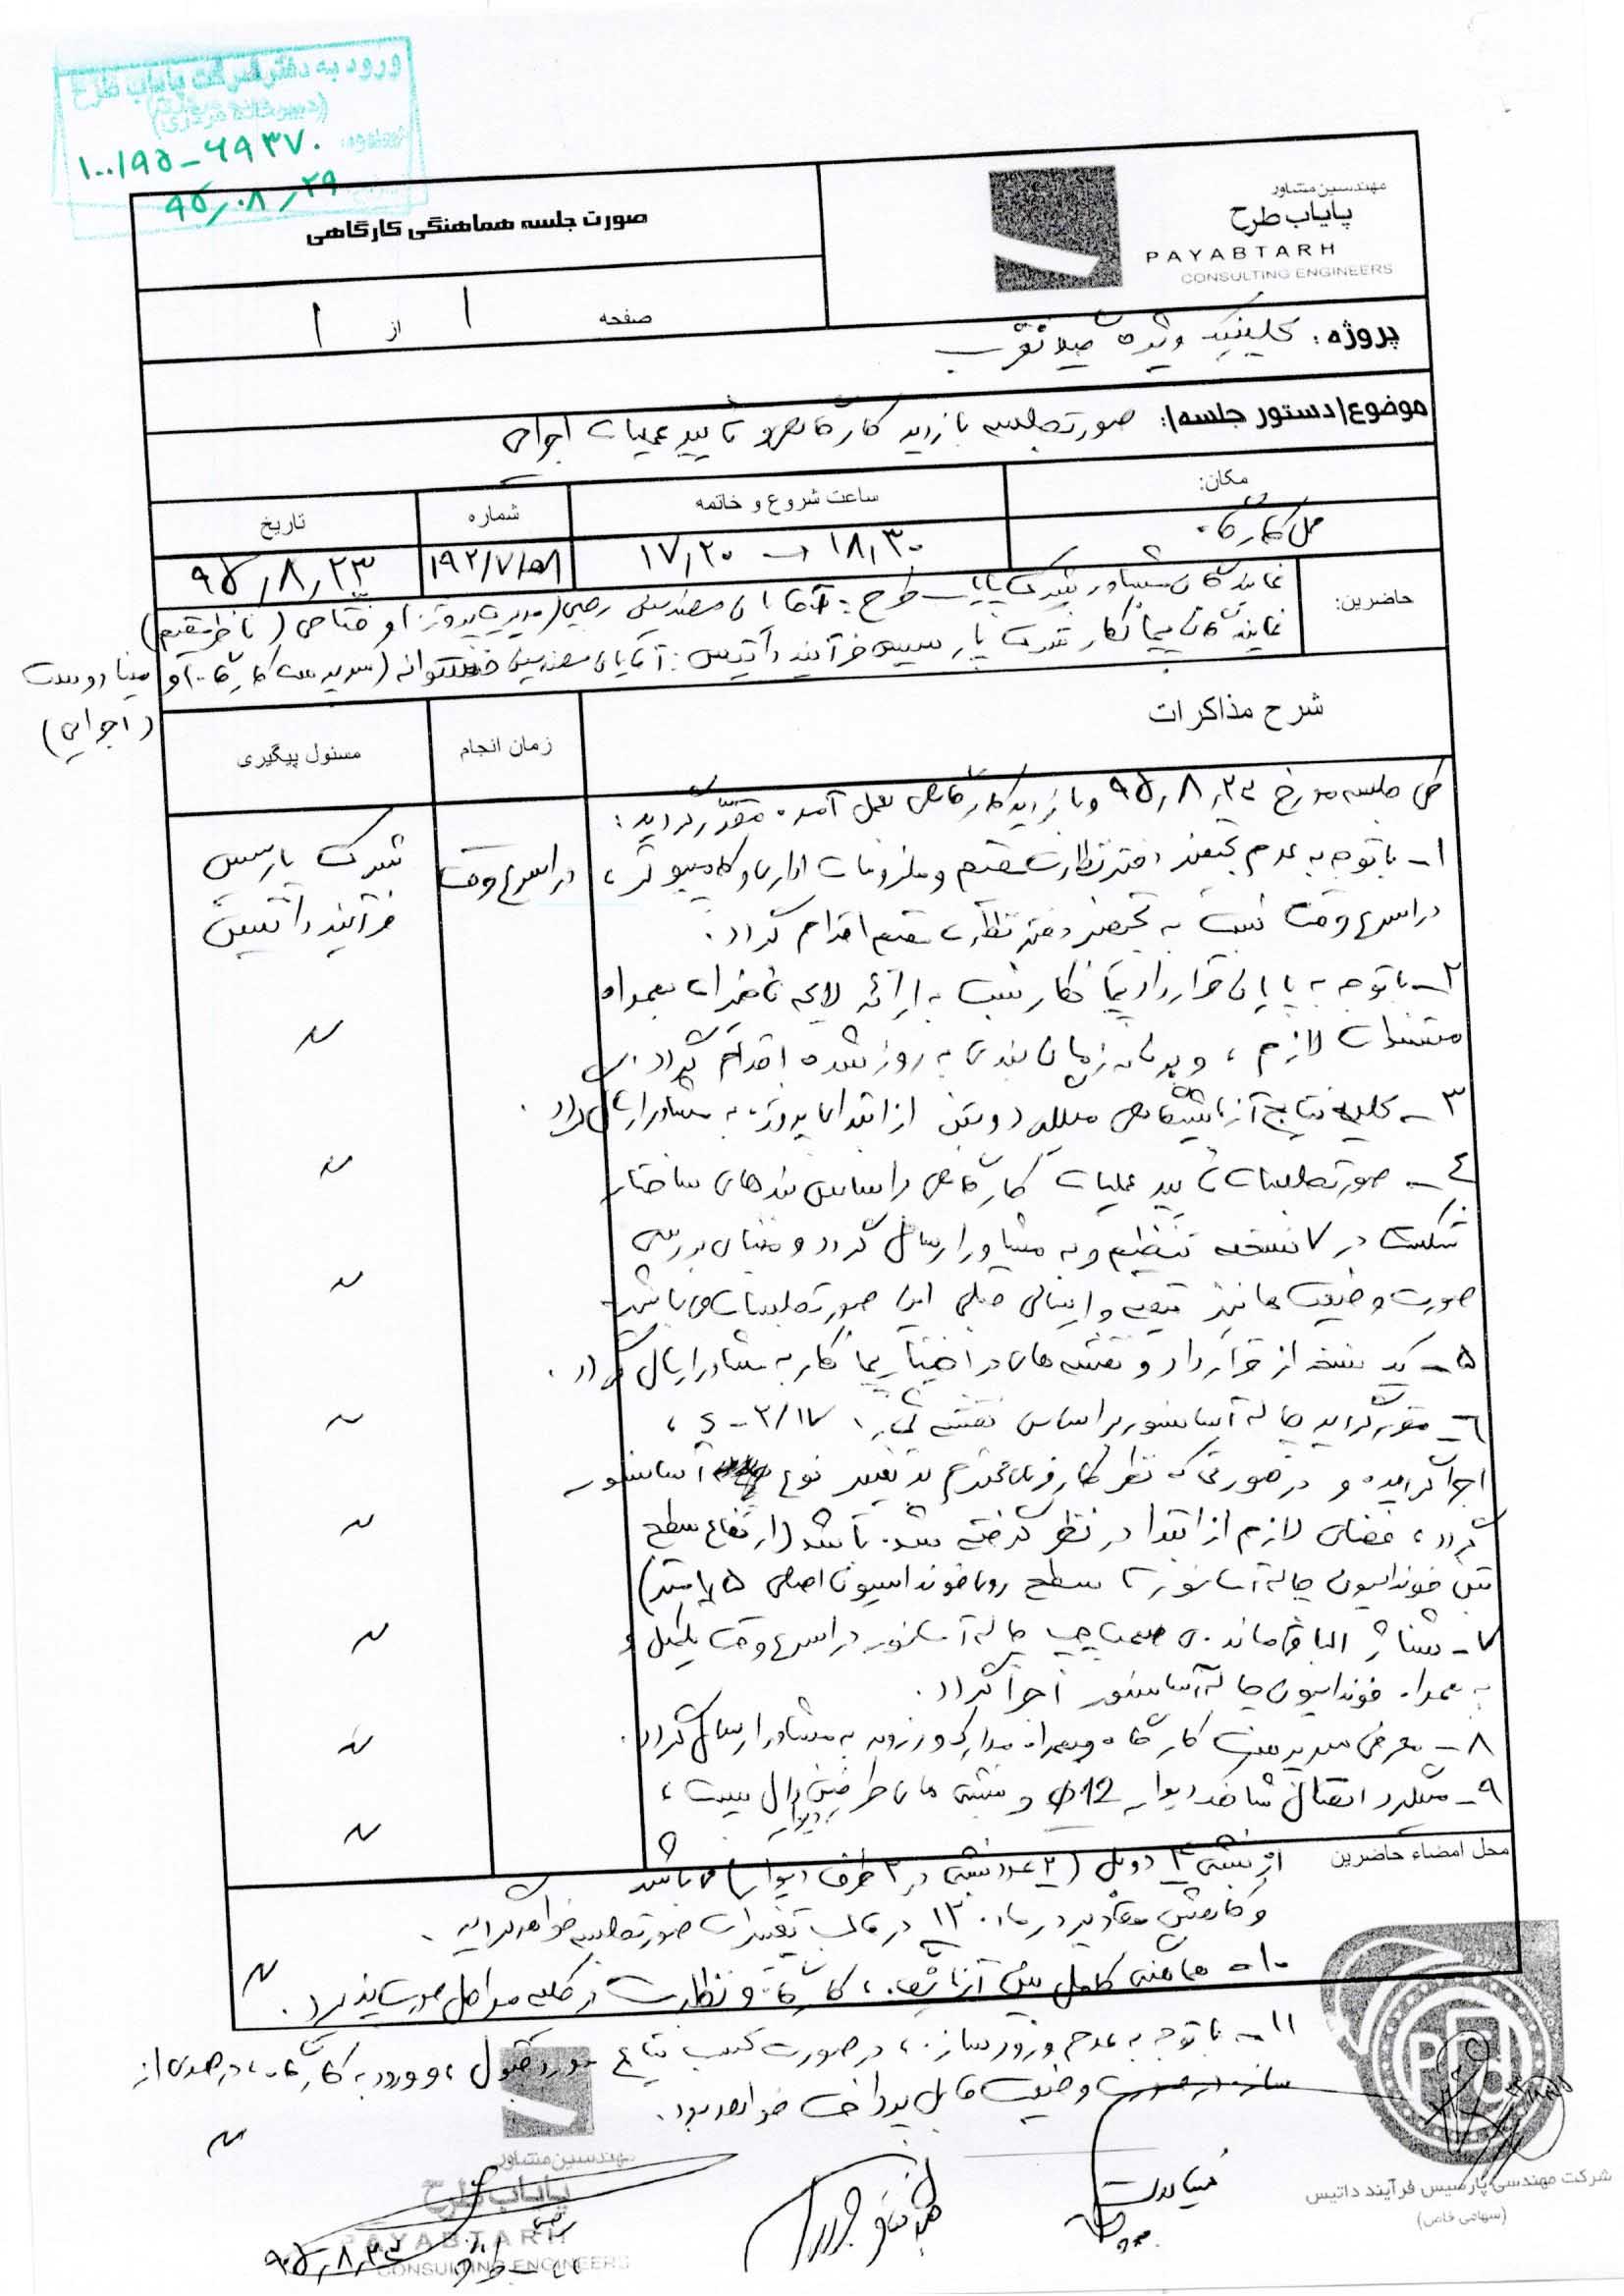 ورود به دفتر شرکت پایاب طرح
(دبیرخانه مرکزی)
۱۰۰/۹۵-۶۹۳۷۰
۹۵/۰۸/۲۹
مهندسین مشاور
پایاب طرح
PAYABTARH
CONSULTING ENGINEERS
صورت جلسه هماهنگی کارگاهی
صفحه ۱ از ۱
پروژه: کلینیک ویژه
موضوع/دستور جلسه/: صورتجلسه بازدید کارگاهی و تایید عملیات اجرایی
مکان: ساعت شروع و خاتمه شماره تاریخ
محل کارگاه ۱۸,۳۰ ۱۷,۲۰ ۱۹۲/۷/۵۸ ۹۵,۸,۲۳
حاضرین:
نمایندگان مشاور شرکت پایاب طرح: آقایان مهندسین رجبی (مدیر پروژه) و فتاحی (ناظر مقیم)
نمایندگان پیمانکار شرکت پارسیس فرآیند داتیس: آقایان مهندسین (سرپرست کارگاه) و مینا دوست
(اجرایی)
شرح مذاکرات زمان انجام مسئول پیگیری
طی جلسه مورخ ۹۵,۸,۲۳ و بازدید کارگاهی بعمل آمده مقرر گردید:
۱- با توجه به عدم تجهیز دفتر نظارت مقیم و ملزومات اداری و کامپیوتر، در اسرع وقت شرکت پارسیس
در اسرع وقت نسبت به تجهیز دفتر نظارت مقیم اقدام گردد. فرآیند داتیس
۲- با توجه به پایان قرارداد پیمانکار نسبت به ارائه لایحه تاخیرات بهمراه
مستندات لازم، و برنامه زمان بندی به روز شده اقدام گردد.
۳- کلیه نتایج آزمایشگاهی میلگرد و بتن از ابتدای پروژه به مشاور ارسال گردد.
۴- صورتجلسات تایید عملیات کارگاهی براساس بندهای ساختار
شکست در ۷ نسخه تنظیم و به مشاور ارسال گردد و مبنای بررسی
صورت وضعیت ها نیز تهیه و ارسال قبلی این صورتجلسات می باشد.
۵- یک نسخه از قرارداد و نقشه های در اختیار پیمانکار به مشاور ارسال گردد.
۶- مقرر گردید چاله آسانسور براساس نقشه
اجرا گردیده و در صورتی که نظر کارفرمای محترم به تغییر نوع آسانسور
گردد، فضای لازم از ابتدا در نظر گرفته شده باشد (ارتفاع سطح
بتن فونداسیون چاله آسانسور تا سطح روی فونداسیون اصلی ۱/۷۵ متر)
۷- شناژ باقیمانده سمت چپ چاله آسانسور در اسرع وقت تکمیل و
به همراه فونداسیون چاله آسانسور اجرا گردد.
۸- معرفی سرپرست کارگاه بهمراه مدارک و رزومه به مشاور ارسال گردد.
۹- میلگرد اتصال شاخک دیوار Φ12 و نبشی های طرفین دیوار وال پست،
از نبشی ۴ دوبل (۲ عدد نبشی در ۲ طرف دیوار) می باشد
و کاهش مقادیر در ماده ۳۰ در قالب تغییرات صورتجلسه خواهد گردید.
۱۰- هماهنگی کامل بین آزمایشگاه، کارگاه و نظارت در کلیه مراحل صورت پذیرد.
محل امضاء حاضرین
۱۱- با توجه به عدم ورود سازه، در صورت کسب نتایج مورد قبول، و ورود به کارگاه، درصدی از
وضعیت قابل پرداخت خواهد بود.
مهندسین مشاور
پایاب طرح
PAYABTARH
CONSULTING ENGINEERS
رجبی
۹۵,۸,۲۳
مینا دوست
شرکت مهندسی پارسیس فرآیند داتیس
(سهامی خاص)